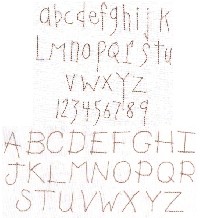 abcdefghijk
LMnopqrstu
vwxyz
123456789
ABCDEFGHI
JKLMNOPQR
STUVWXYZ